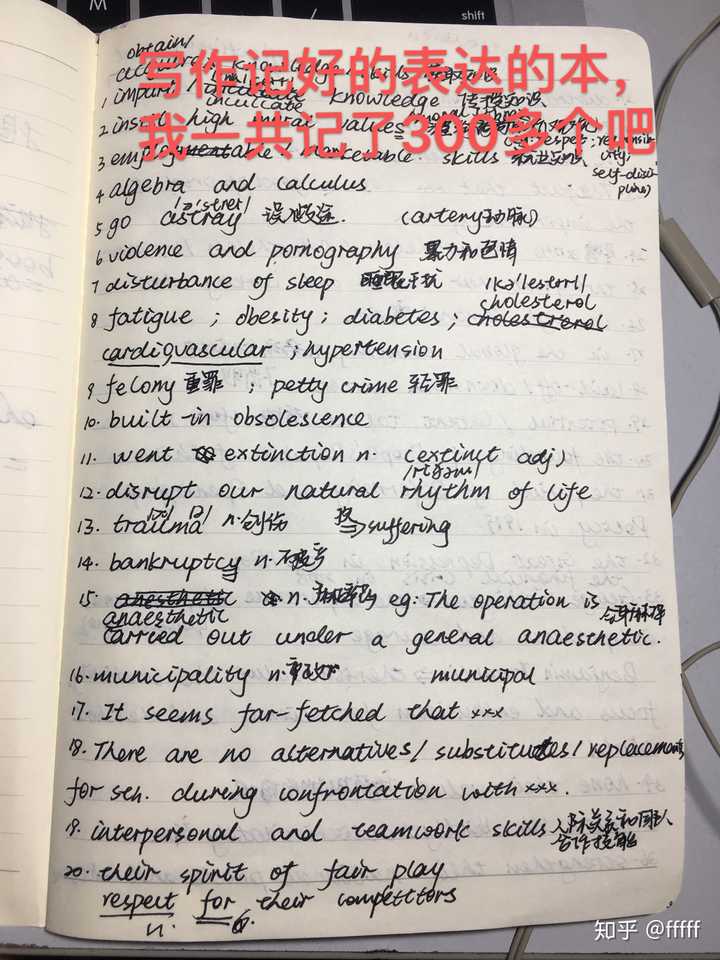 shift
写作记好的表达的本，
我一共记了300多个吧
obtain/
knowledge / skills
1 impart / inculcate knowledge 传授知识
2 instill high moral values respect; responsibility; self-disciplines)
3 employmentable / marketable skills
4 algebra and calculus
5 go astray 误入歧途. (artery动脉)
6 violence and pornography 暴力和色情
7 disturbance of sleep 睡眠干扰 /kə'lestərɒl/
cholesterol
8 fatigue ; obesity ; diabetes ; cholestrerol
cardiovascular ; hypertension
9 felony 重罪 ; petty crime 轻罪
10. built-in obsolescence
11. went to extinction n. (extinct adj)
12. disrupt our natural rhythm of life
13. trauma n.创伤 suffering
14. bankruptcy n.破产
15 anesthetic n. eg: The operation is
anaesthetic
carried out under a general anaesthetic.
16. municipality n.市政府 municipal
17. It seems far-fetched that xxx
18. There are no alternatives/ substitutes/ replacements
for sth. during confrontation with xxx.
19. interpersonal and teamwork skills 人际关系和团队
合作技能
20. their spirit of fair play
respect for their competitors
n.
知乎 @fffff